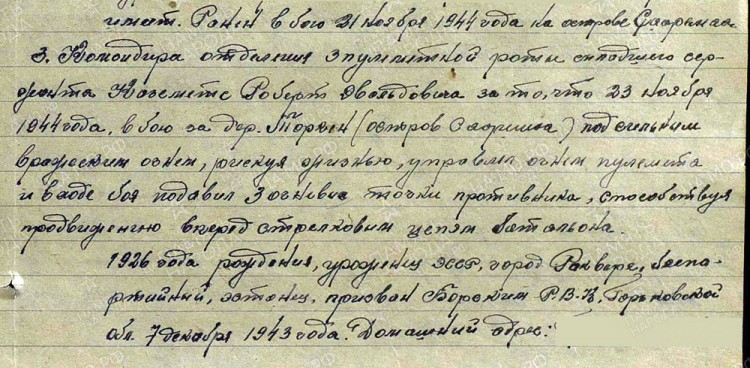 имат. Ранен в бою 21 ноября 1944 года на острове Сааремаа
3. Командира отделения 3 пулеметной роты младшего сер-
жанта Каземетс Роберт Эвальдовича за то, что 23 ноября
1944 года, в бою за дер. Торкен (остров Сааримаа) под сильным
вражеским огнем, рискуя жизнью, управлял огнем пулемета
и в ходе боя подавил 3 огневые точки противника, способствуя
продвижению вперед стрелковым цепям батальона.
1926 года рождения, уроженец ЭССР, город Раквере, беспа-
ртийный, эстонец, призван Борским Р.В.К., Горьковской
обл. 7 декабря 1943 года. Домашний адрес: